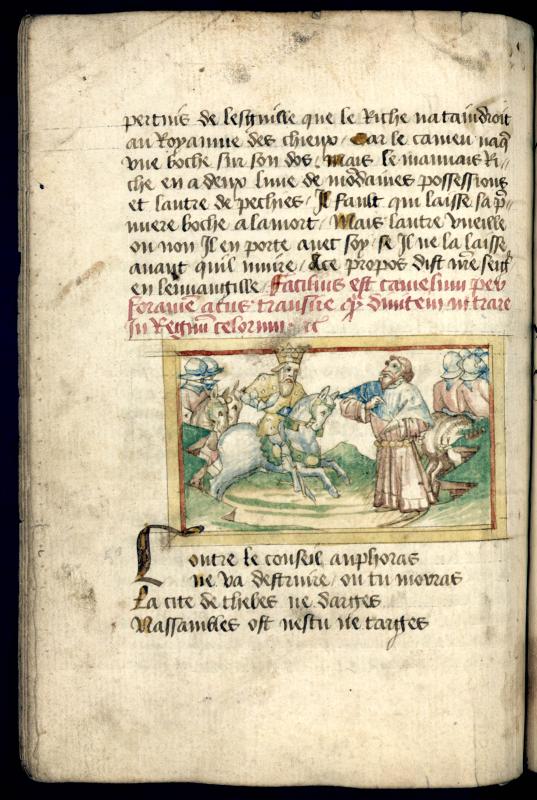 pertuis de lesguille que le Riche nataindroit
au Royaume des chieux / Car le cameu na q̃
vne boche sur son dos. Mais le mauuais Ri//
che en a deux lune de mõdaines possessions
et lautre de pechies / Il fault qui laisse sa p̃//
miere boche a la mort / Mais lautre vueille
ou non Il en porte auec soy / se Il ne la laisse
auant quil muire / Ace propos dist nr̃e seigr̃
en leuuangille / Facilius est camelum per
foramẽ acus transire q̃ diuitem intrare
In Regnũ celorum
Loutre le conseil anphoras
ne va destruire / ou tu mouras
La cite de thebes ne darges
Nassambles ost nestu ne targes